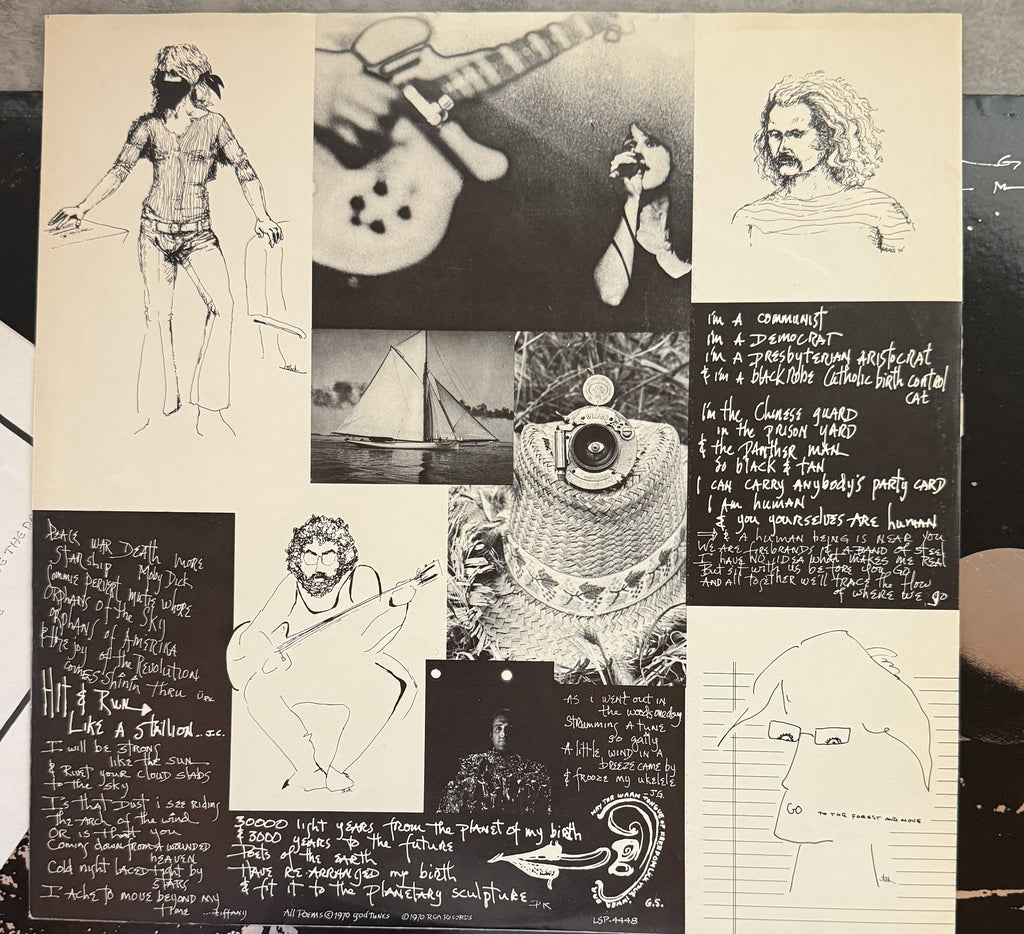 i'm A communist
i'm A DEMOCRAT
i'm A PRESBYTERIAN ARISTOCRAT
& i'm A blackRobe Catholic birth control
CAT
i'm the Chinese guard
in the prison yard
& the panther man
so black & tan
I can carry anybody's party card
I am human
& you yourselves are human
→ & A human being is near you
We are firebrands & A band of steel
I have no idea what makes me real
But sit with us before you go
And all together we'll trace the flow
of where we go
WIZARD
Peace War Death more
Starship Moby Dick
Commie pervert mutie whore
Orphans of the sky
orphans of Amerika
& the joy of the Revolution
comes shinin thru
Hit & Run →
Like a stallion... J.C.
I will be strong
like the sun
& Rivet your cloud slabs
to the sky
Is that dust i see riding
The arch of the wind
or is that you
Coming down from a wounded
heaven
Cold night laced tight by
stars
I ache to move beyond my
time ...tiffany
As i went out in
the woods one day
Strumming a tune
so gaily
A little wind in a
breeze came by
& froze my ukelele
-J.G.
30000 light years from the planet of my birth
& 3000 years to the future
Poets of the earth
Have re-arranged my birth
& fit it to the planetary sculpture... PK
MAY THE WARM TONGUE OF FREEDOM
G.S.
GO TO THE FOREST AND MOVE
All Poems © 1970 god Tunes © 1970 RCA Records
LSP-4448
G
M